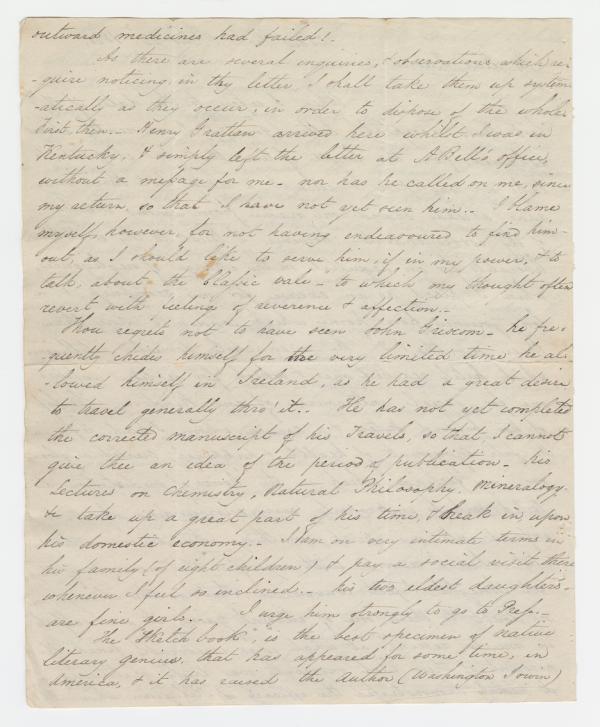 outward medicines had failed!-
As there are several inquiries, & observations, which re-
-quire noticing, in thy letter, I shall take them up system-
-atically as they occur, in order to dispose of the whole.
First, then.- Henry Gratten arrived here whilst I was in
Kentucky, & simply left the letter at A Bell's office,
without a message for me- nor has he called on me, since
my return, so that I have not yet seen him.. I blame
myself, however, for not having endeavoured to find him
out, as I should like to serve him, if in my power, & to
talk about the Classic vale- to which my thought often
revert with feelings of reverence & affection.-
Thou regrets not to have seen John Griscom- he fre-
-quently chides himself for the very limited time he al-
-lowed himself in Ireland, as he had a great desire
to travel generally thro' it.. He has not yet completed
the corrected manuscript of his Travels, so that, I cannot
give thee an idea of the period of publication- his
Lectures on Chemistry, Natural Philosophy, Mineralogy
& take up a great part of his time, & break in, upon
his domestic economy.- I am on very intimate terms in
his family (of eight children) & pay a social visit there
whenever I feel so inclined.- his two eldest daughters
are fine girls.. I urge him strongly to go to Press.-
The "Sketch book" is the best specimen of native
literary genius, that has appeared for some time, in
America, & it has raised the Author (Washington Irwin)